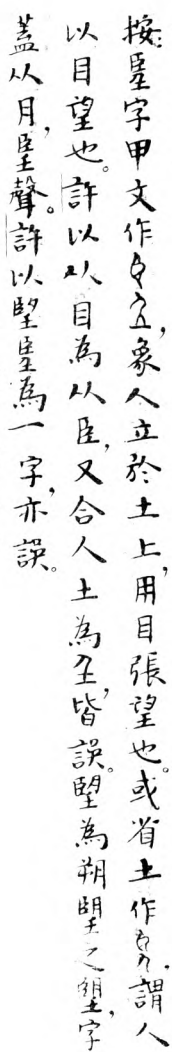 按:𦣠字甲文作,象人立於土上,用目張望也。或省土作,謂人
以目望也。許以从目為从臣,又合人土為𡈼,皆誤。朢為朔朢之朢,字
蓋从月,𦣠聲。許以朢𦣠為一字,亦誤。